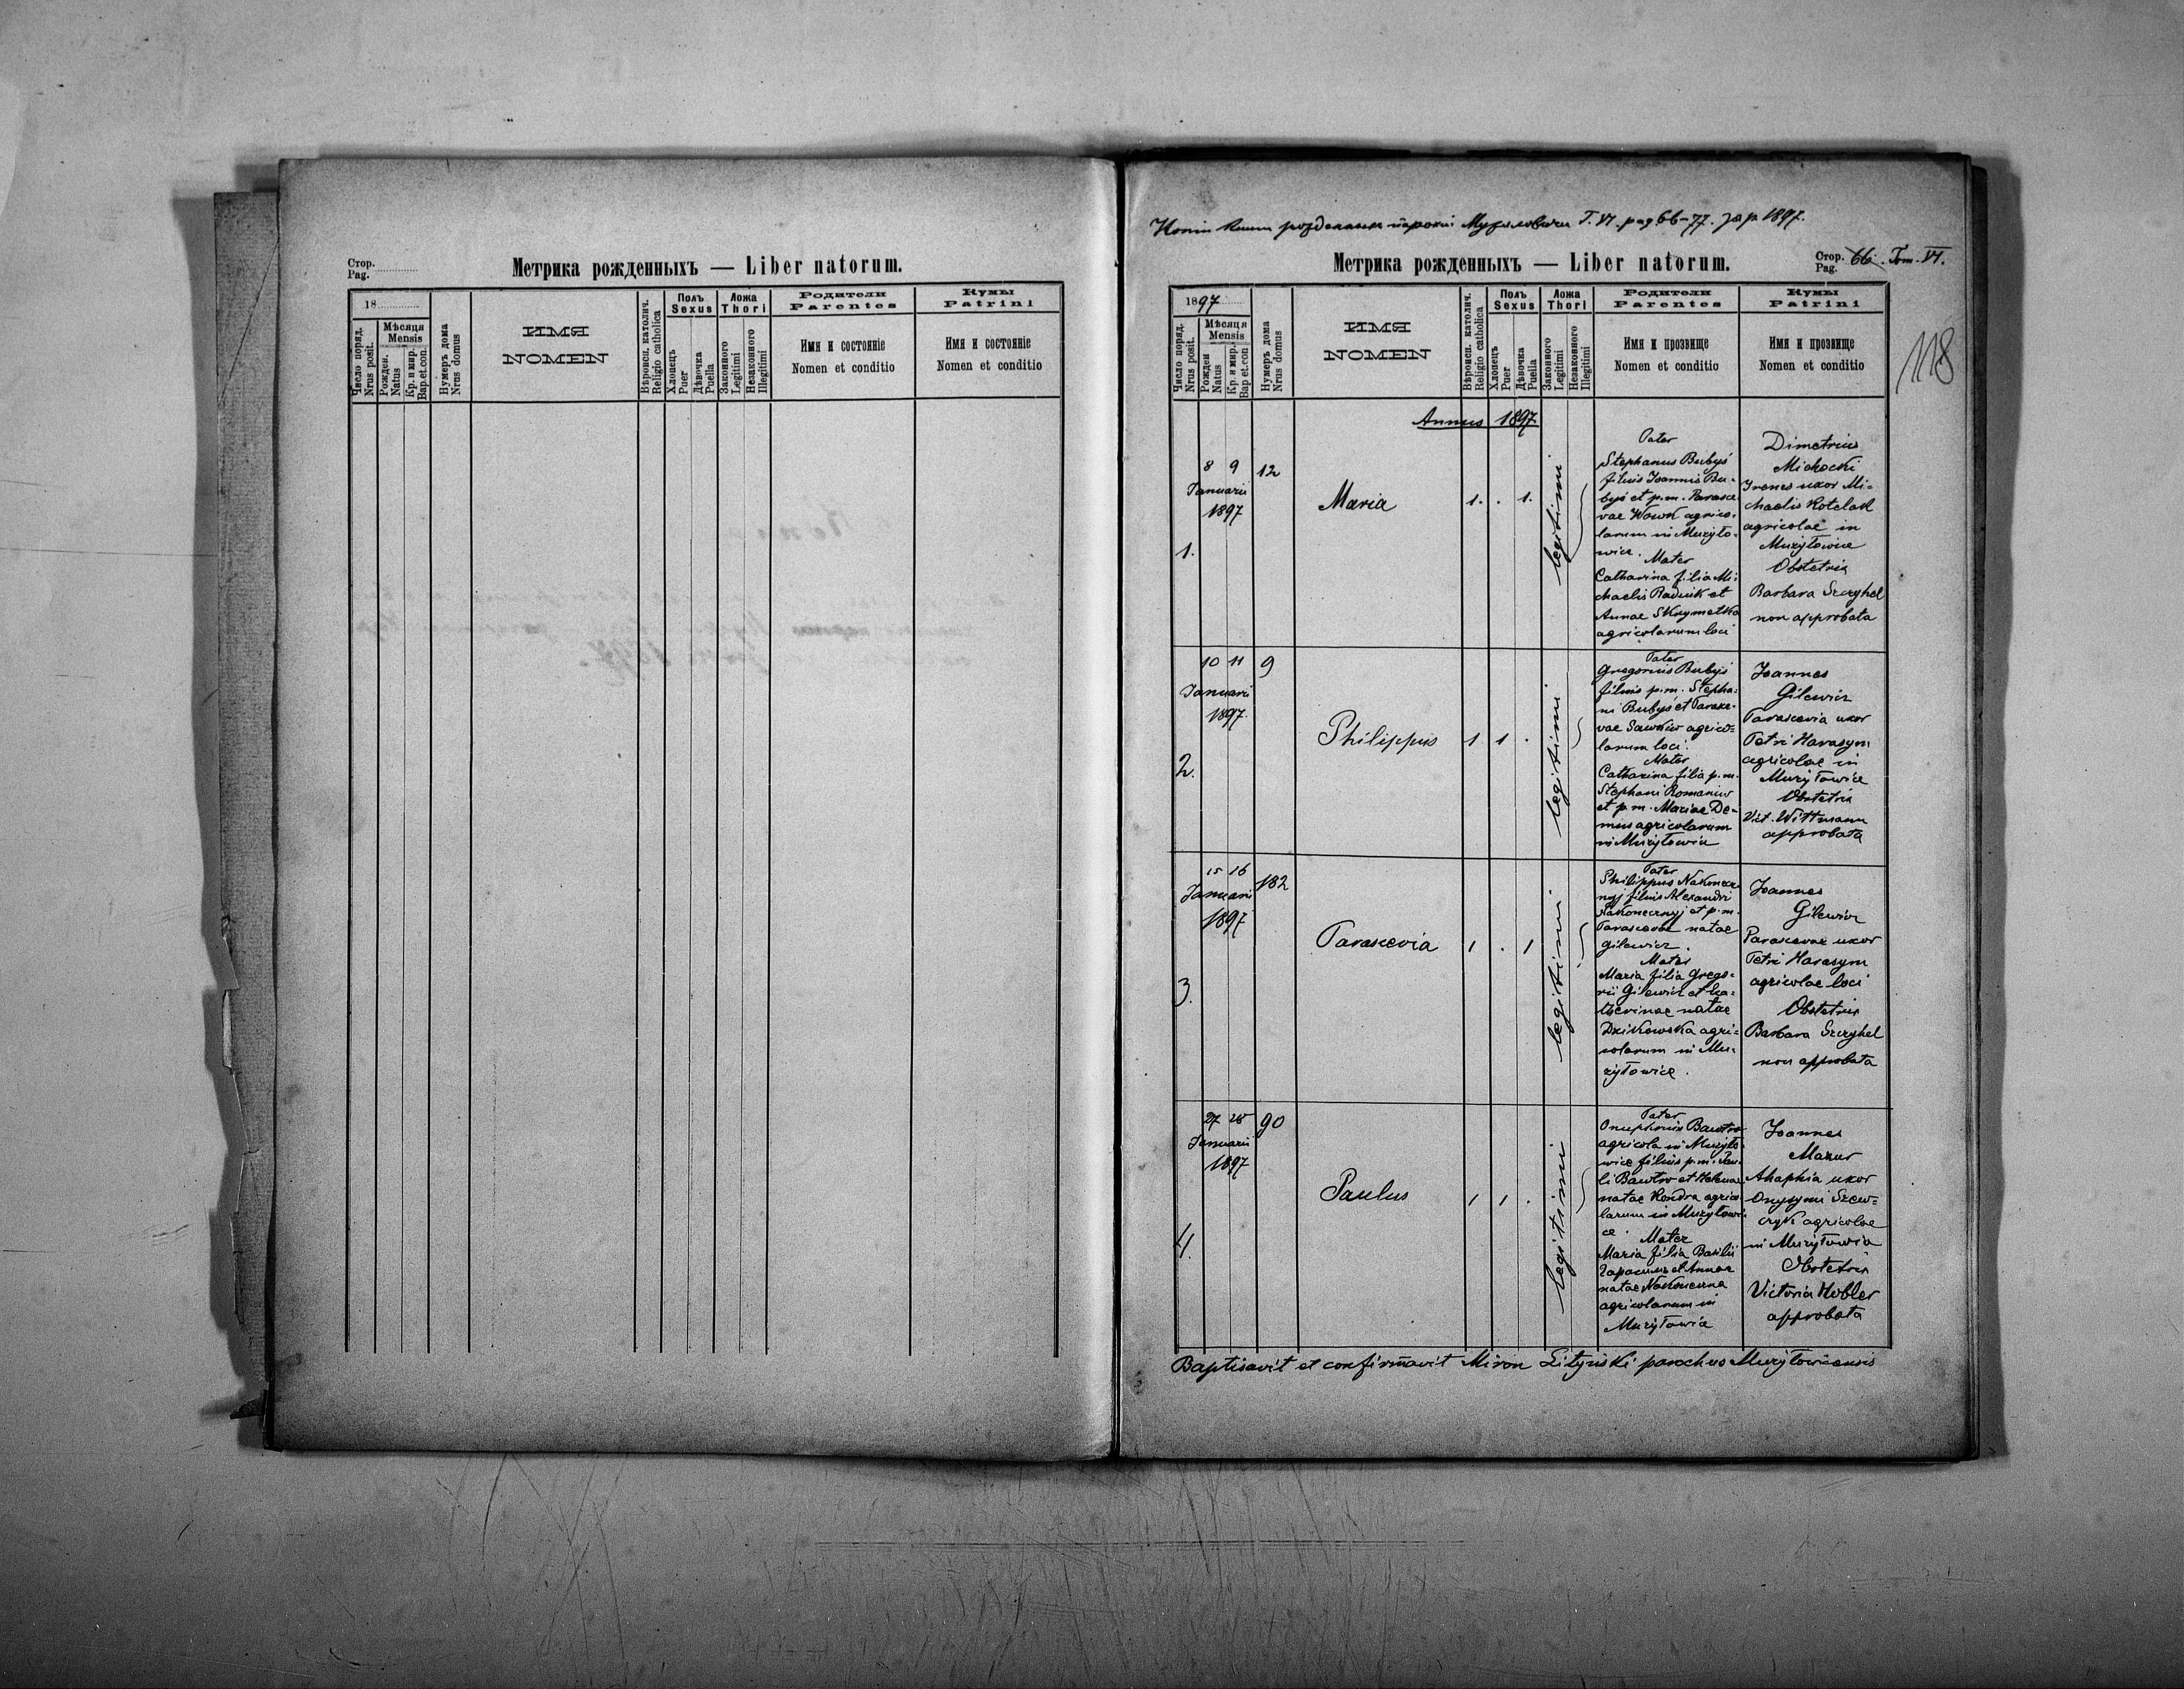 Стор.
Pag.
Метрика рожденныхъ — Liber natorum.
18
Число поряд.
Nrus posit.
Мѣсяця
Mensis
Рожден.
Natus
Кр. и мир.
Bap. et. con.
Нумеръ дома
Nrus domus
ИМЯ
NOMEN
Вѣроисп. католич.
Religio catholica
Полъ
Sexus
Хлопецъ
Puer
Дѣвочка
Puella
Ложа
Thori
Законного
Legitimi
Незаконного
Illegitimi
Родители
Parentes
Имя и состоянiе
Nomen et conditio
Кумы
Patrini
Имя и состоянiе
Nomen et conditio
Копiи рожденных Т. VI. pag 66-77. за р. 1897.
Метрика рожденныхъ — Liber natorum.
Стор.
Pag. 66. Tom. VI.
118
1897
Число поряд.
Nrus posit.
Мѣсяця
Mensis
Рожден
Natus
Кр. и мир.
Bap et. con.
Нумеръ дома
Nrus domus
ИМЯ
NOMEN
Вѣроисп. католич.
Religio catholica
Полъ
Sexus
Хлопецъ
Puer
Дѣвочка
Puella
Ложа
Thori
Законного
Legitimi
Незаконного
Illegitimi
Родители
Parentes
Имя и прозвище
Nomen et conditio
Кумы
Patrini
Имя и прозвище
Nomen et conditio
Annus 1897
1.
8 9
Januarii
1897
12
Maria
1. . 1.
legitimi
Pater
Stephanus Bubyś
filius Joannis Bu-
byś et p.m. Parasce-
vae Wowk agrico-
larum in Mużyło-
wice.
Mater
Catharina filia Mi-
chaelis Radwik et
Annae Skrymetka
agricolarum loci
Dimetrius
Michocki
Irenes uxor Mi-
chaelis Kotelak
agricolae in
Mużyłowice
Obstetrix
Barbara Szczyhel
non approbata
2.
10 11
Januarii
1897.
9
Philippus
1 1 .
legitimi
Pater
Gregorius Bubyś
filius p.m. Stepha-
ni Bubyś et Parasce-
vae Sawkiw agrico-
larum loci.
Mater
Catharina filia p.m.
Stephani Romaniw
et p.m. Mariae De-
mus agricolarum
in Mużyłowice
Joannes
Gilewicz
Parascevia uxor
Petri Harasym
agricolae in
Mużyłowice
Obstetrix
Vict. Wittmann
approbata
3.
15 16
Januarii
1897
182
Parascevia
1 . 1
legitimi
Pater
Philippus Nakonecz-
nyj filius Alexandri
Nakonecznyj et p.m.
Parascevae natae
Gilewicz.
Mater
Maria filia Grego-
rii Gilewicz et Ca-
therinae natae
Dzikowska agri-
colarum in Mu-
żyłowice.
Joannes
Gilewicz
Parascevae uxor
Petri Harasym
agricolae loci
Obstetrix
Barbara Szczyhel
non approbata
4.
27 28
Januarii
1897
90
Paulus
1 1 .
legitimi
Pater
Onuphrius Bawtro
agricola in Mużyło-
wice filius p.m. Pau-
li Bawtro et Helenae
natae Kondra agrico-
larum in Mużyłowi-
ce.
Mater
Maria filia Basilii
Гарасимъ et Annae
natae Nakoneczna
agricolarum in
Mużyłowice
Joannes
Mazur
Ahaphia uxor
Onysymi Szew-
czyk agricolae
in Mużyłowice
Obstetrix
Victoria Hobler
approbata
Baptisavit et confirmavit Miron Lityński parochus Mużyłowicensis